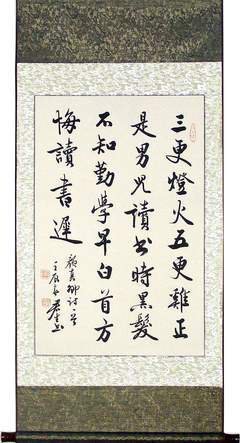 三更燈火五更雞正
是男兒讀書時黑髮
不知勤學早白首方
悔讀書遲
顏真卿詩